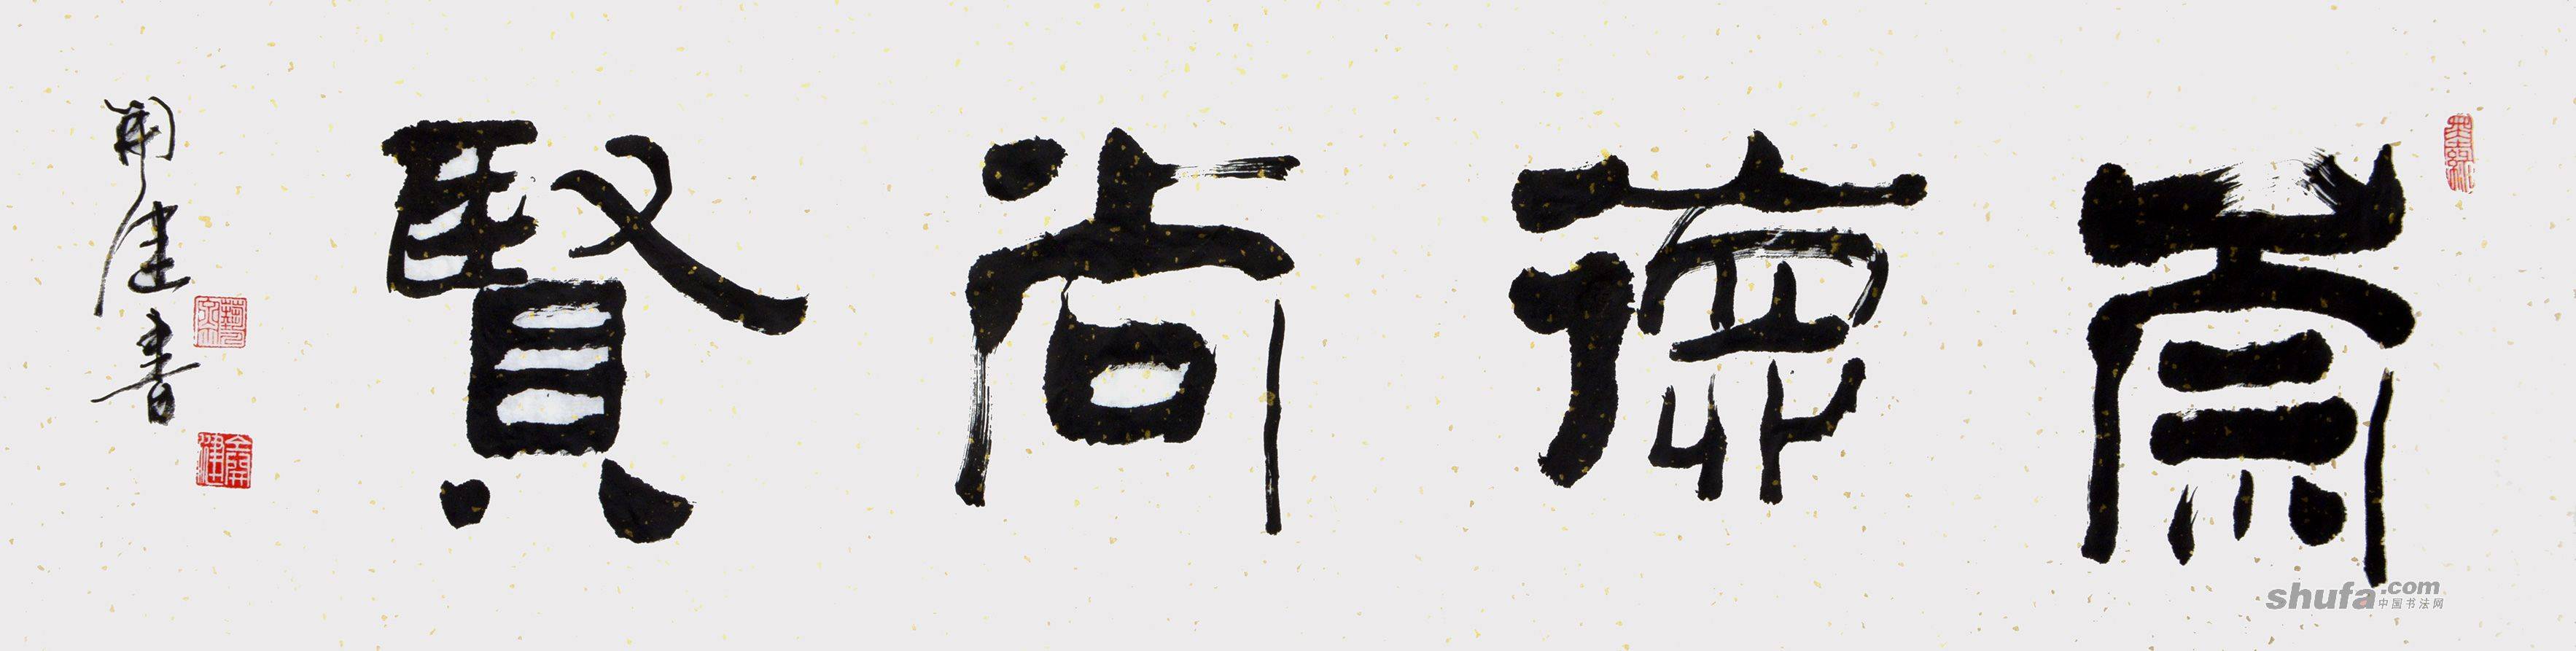 崇德尚賢
開建書
shufa.com
中国书法网